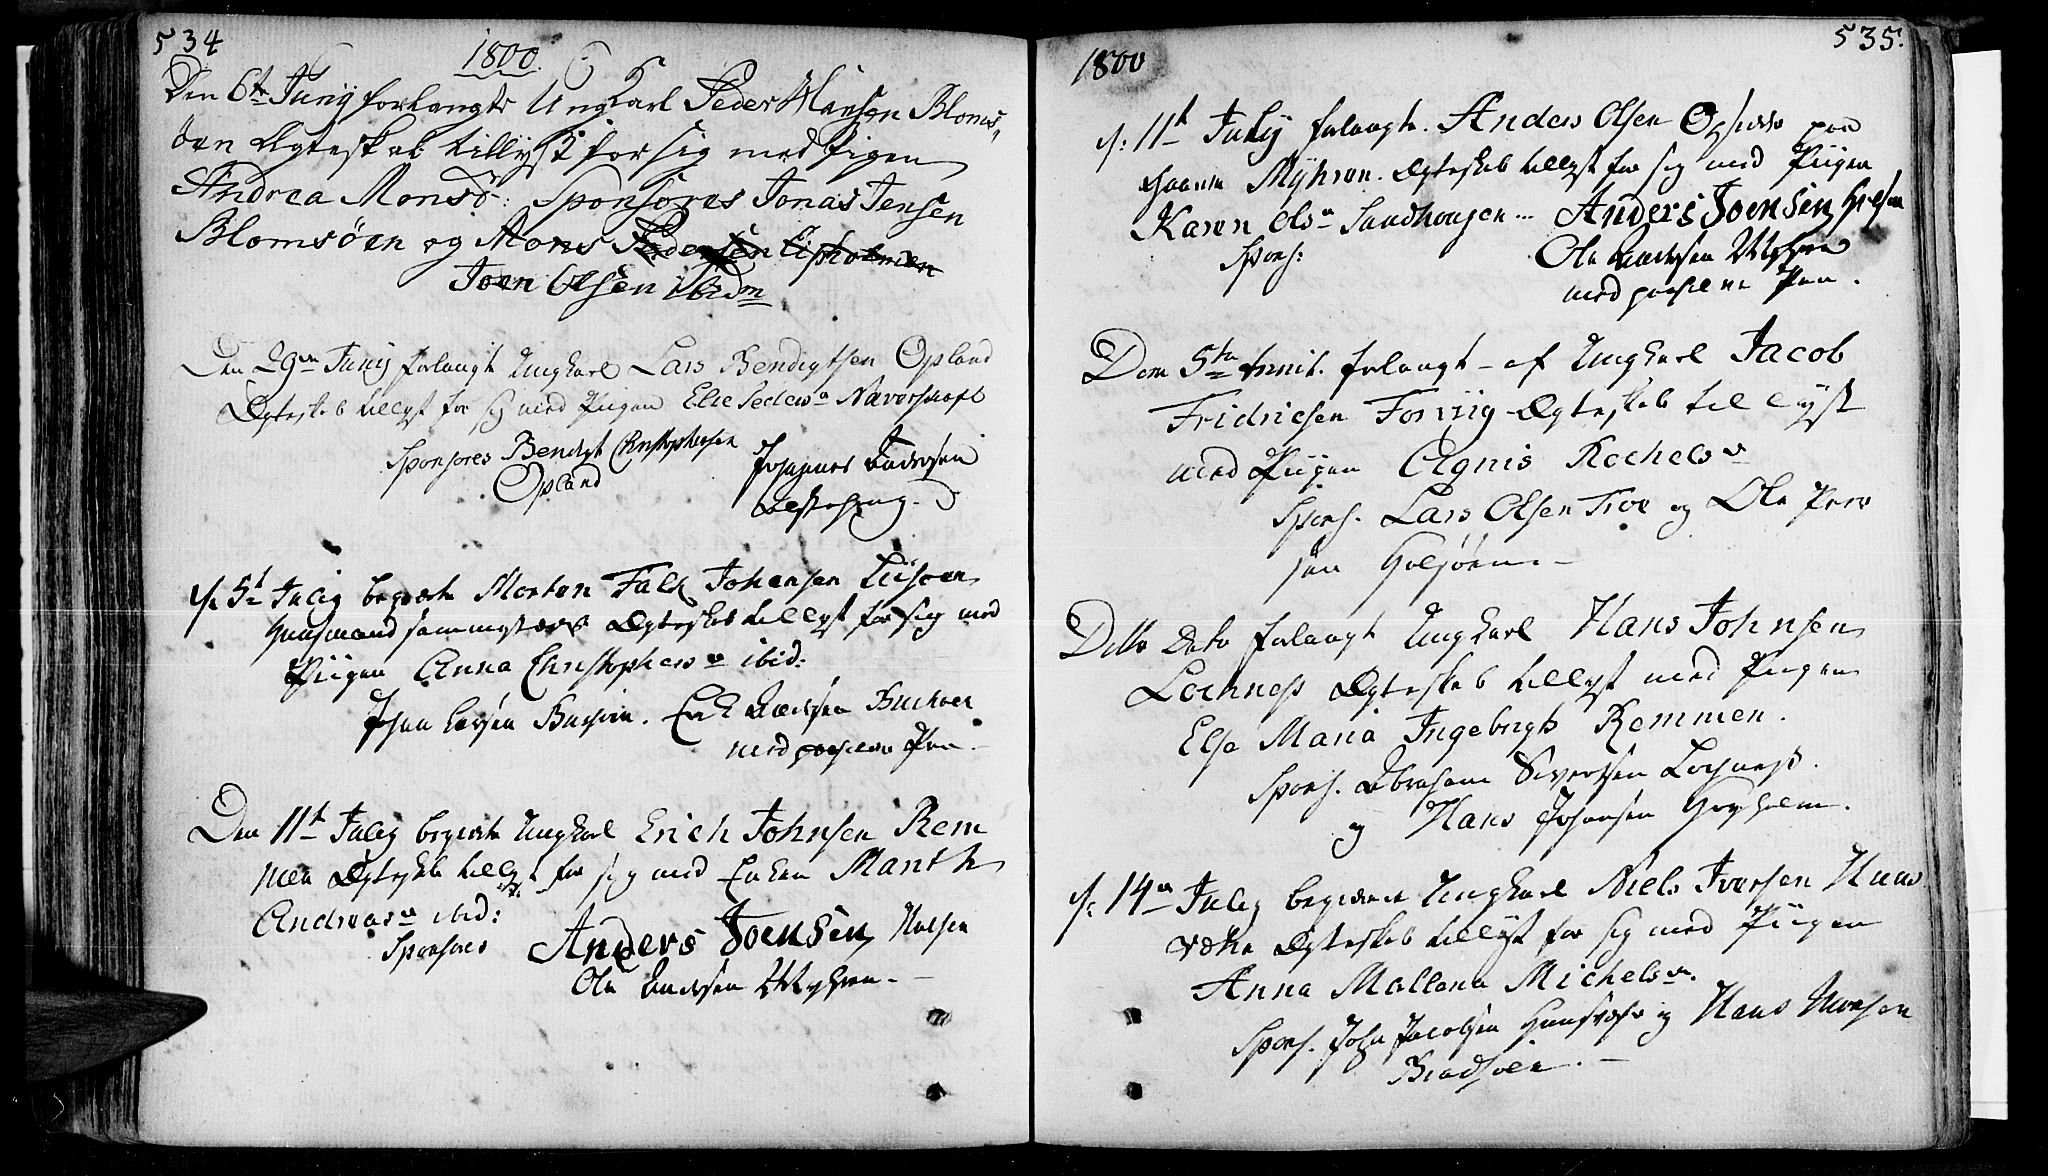 534
1800.
Den 6te Junij forlangte Ungkarl Peder Hansen Bloms,,
öen Ægteskab tillyst for sig med Pigen
Andrea Monsdr: Sponsores Jonas Jensen
Blomsöen og Mons Pedersen
Joen Olsen ibidm
Den 29de Junij forlangt Ungkarl Lars Bendigtsen Opland
Ægteskab tillyst for sig med Piigen Else Pedersdr
Sponsores Bendigt Christophersen
Opland
Johannes Andersen
d. 5t Julij begierte Morten Falch Johansen
Huusmand sammesteds Ægteskab tillyst for sig med
Piigen Anna Christophersdr ibid:
Johan
med paaholden Pen.
Den 11t Julij begierte Ungkarl Erich Johnsen Rem
men Ægteskab tillyst for sig med Enken Marith
Andreasdr ibid:
Sponsores Anders Joensen
Ole Andersen Myhren.
535.
1800
d: 11t Julij forlangte Anders Olsen paa
Myhren Ægteskab tillyst for sig med Piigen
Karen Olsdr Sandhougen Anders Joensen
Spons: Ole Andersen Myhren
med paaholden Pen.
Dem 5te forlangt af Ungkarl Jacob
Fridrichsen Forviig Ægteskab tillyst
med Piigen Agnis Rochelsdr
Spons. Lars Olsen Troe og Ole Peder
sen
Ditto Dato forlangt Ungkarl Hans Johnsen
Lochness Ægteskab tillyst med Piigen
Else Maria Ingebrigts Remmen.
Spons. Abraham Sivertsen Lochness.
og Hans Johansen Høyholm.
d: 14de Julij begierte Ungkarl Niels Iversen Huus
Ægteskab tillyst for sig med Piigen
Anna Mallena Michelsdr.
Spons. John Jacobsen og Hans